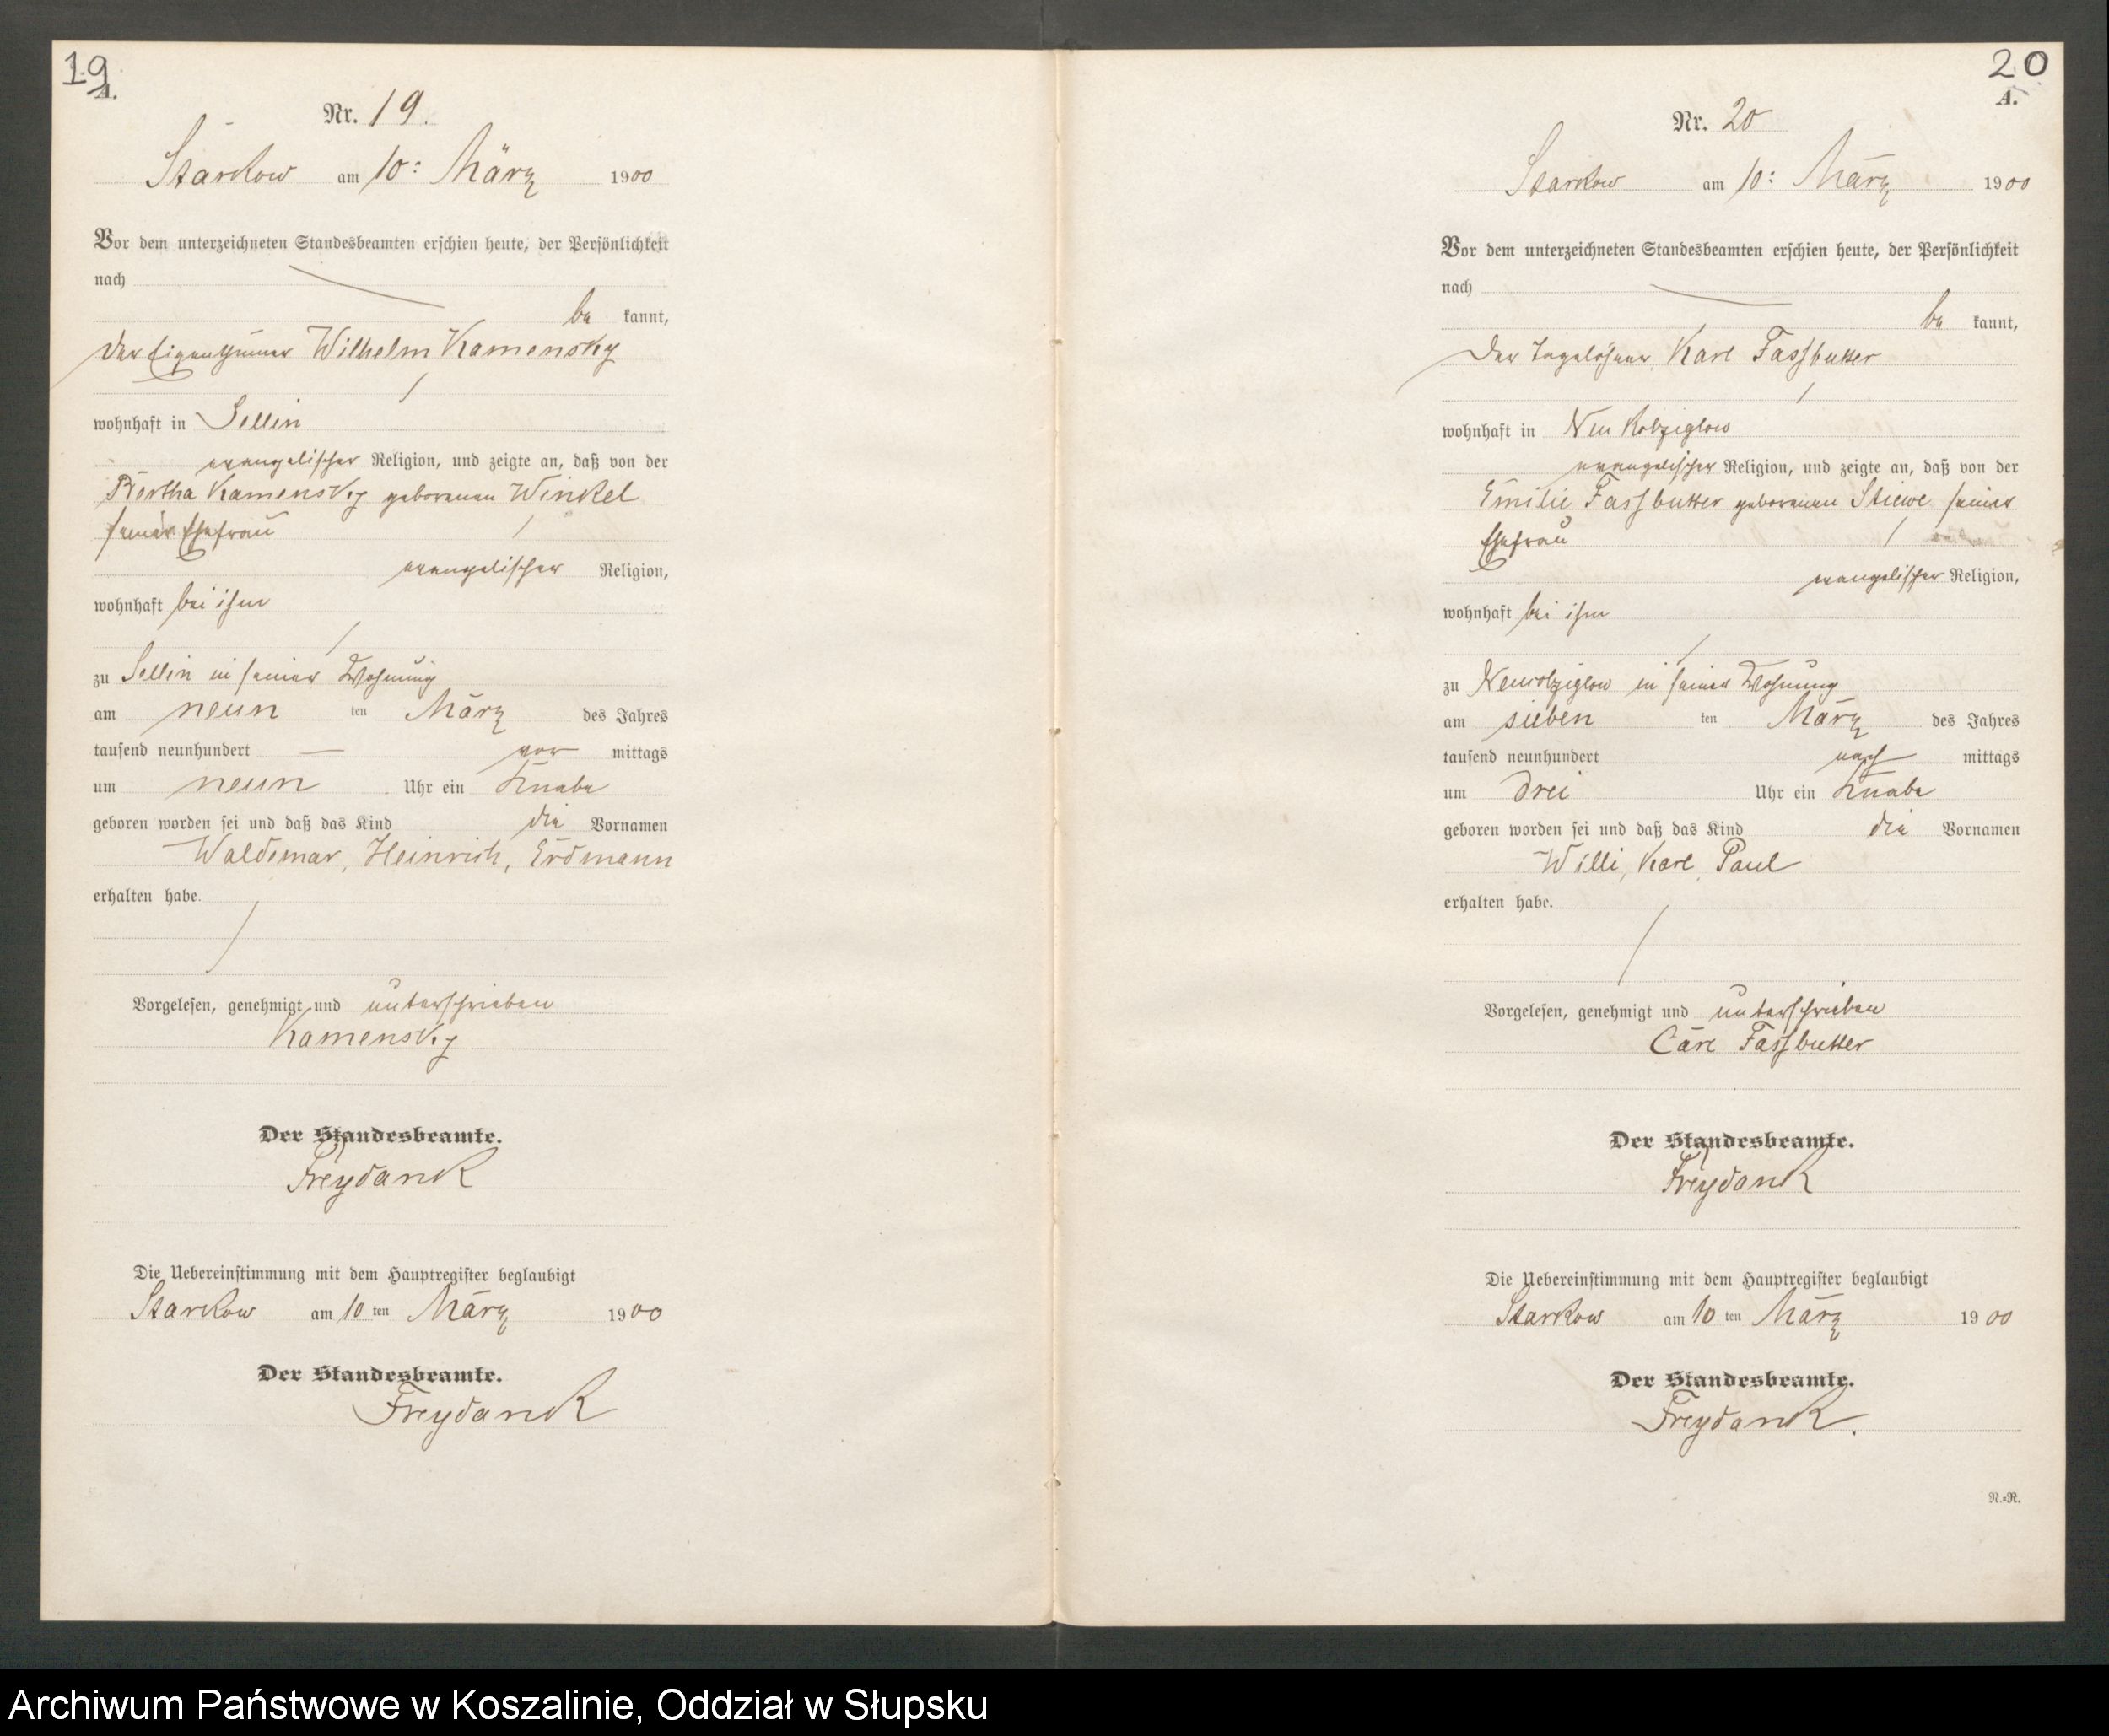 19
A.
Nr. 19.
Starkow am 10: März 1900
Vor dem unterzeichneten Standesbeamten erschien heute, der Persönlichkeit
nach
be kannt,
der Eigenthümer Wilhelm Kamensky
wohnhaft in Sellin
evangelischer Religion, und zeigte an, daß von der
Bertha Kamensky geborenen Winkel
seiner Ehefrau
evangelischer Religion,
wohnhaft bei ihm
zu Sellin in seiner Wohnung
am neun ten März des Jahres
tausend neunhundert — vor mittags
um neun Uhr ein Knabe
geboren worden sei und daß das Kind die Vornamen
Waldemar, Heinrich, Erdmann
erhalten habe.
Vorgelesen, genehmigt und unterschrieben
Kamensky
Der Standesbeamte.
Freydank
Die Uebereinstimmung mit dem Hauptregister beglaubigt
Starkow am 10 ten März 1900
Der Standesbeamte.
Freydank
20
A.
Nr. 20
Starkow am 10: März 1900
Vor dem unterzeichneten Standesbeamten erschien heute, der Persönlichkeit
nach
be kannt,
der Tagelöhner Karl Fassbutter
wohnhaft in Neu Kolziglow
evangelischer Religion, und zeigte an, daß von der
Emilie Fassbutter geborenen Stiewe seiner
Ehefrau
evangelischer Religion,
wohnhaft bei ihm
zu Neukolziglow in seiner Wohnung
am sieben ten März des Jahres
tausend neunhundert nach mittags
um drei Uhr ein Knabe
geboren worden sei und daß das Kind die Vornamen
Willi, Karl, Paul
erhalten habe.
Vorgelesen, genehmigt und unterschrieben
Carl Fassbutter
Der Standesbeamte.
Freydank
Die Uebereinstimmung mit dem Hauptregister beglaubigt
Starkow am 10 ten März 1900
Der Standesbeamte.
Freydank.
N.=R.
Archiwum Państwowe w Koszalinie, Oddział w Słupsku